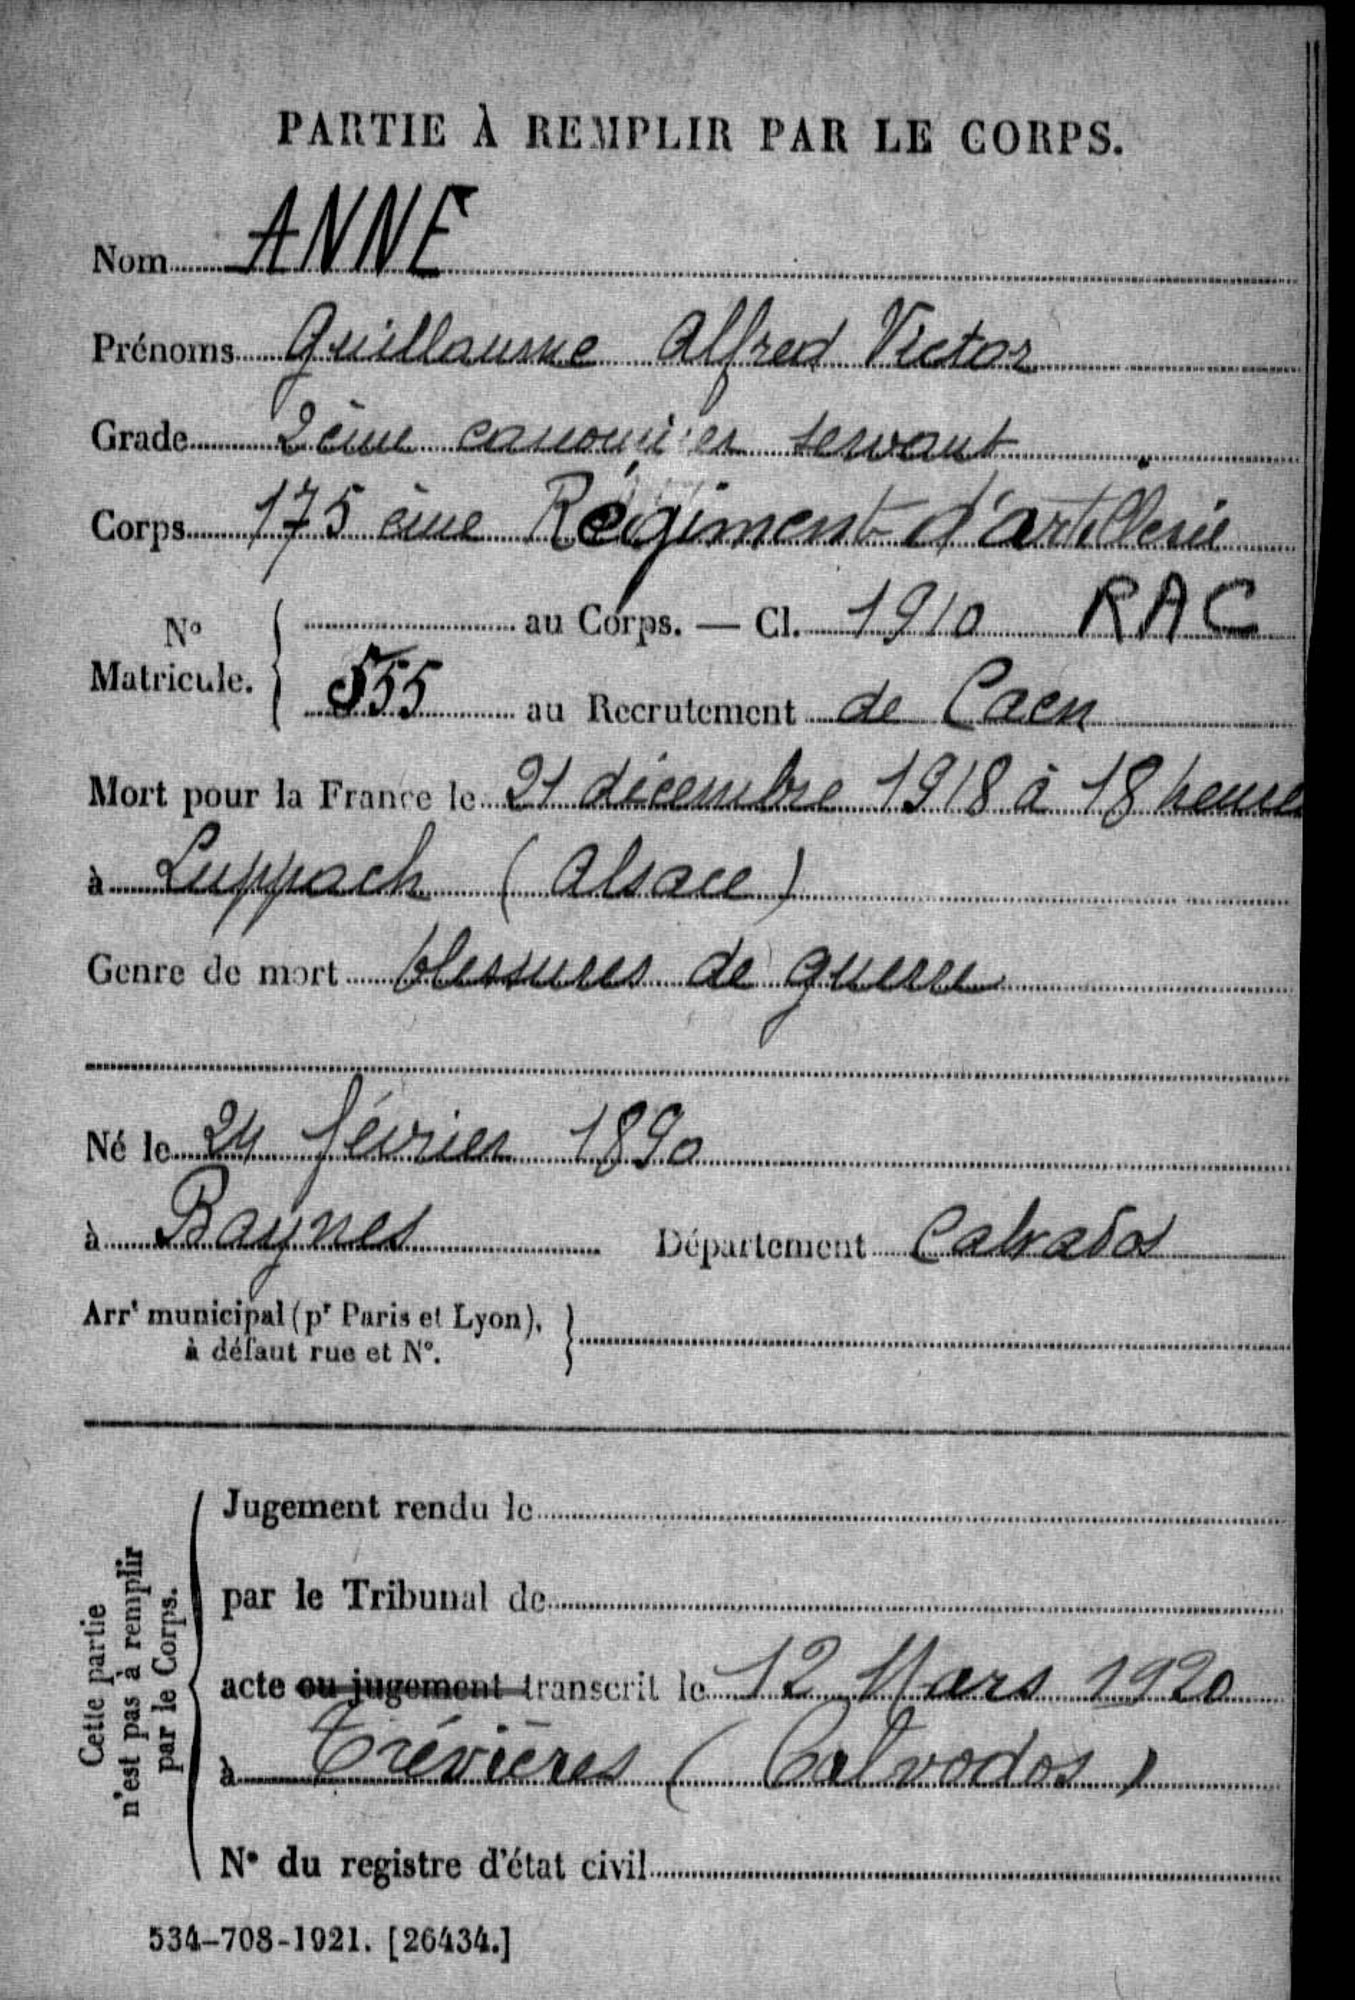 PARTIE À REMPLIR PAR LE CORPS.
Nom ANNE
Prénoms Guillaume Alfred Victor
Grade 2ème canonnier servant
Corps 175 ème Régiment d'artillerie
N° Matricule. { au Corps. — Cl. 1910 RAC
555 au Recrutement de Caen
Mort pour la France le 21 décembre 1918 à 18 heures
à Luppach (Alsace)
Genre de mort blessures de guerre
Né le 24 février 1890
à Baynes Département Calvados
Arrt municipal (pr Paris et Lyon), }
à défaut rue et N°.
Cette partie n'est pas à remplir par le Corps. {
Jugement rendu le
par le Tribunal de
acte ou jugement transcrit le 12 Mars 1920
à Trévières (Calvados)
N° du registre d'état civil
534-708-1921. [26434.]